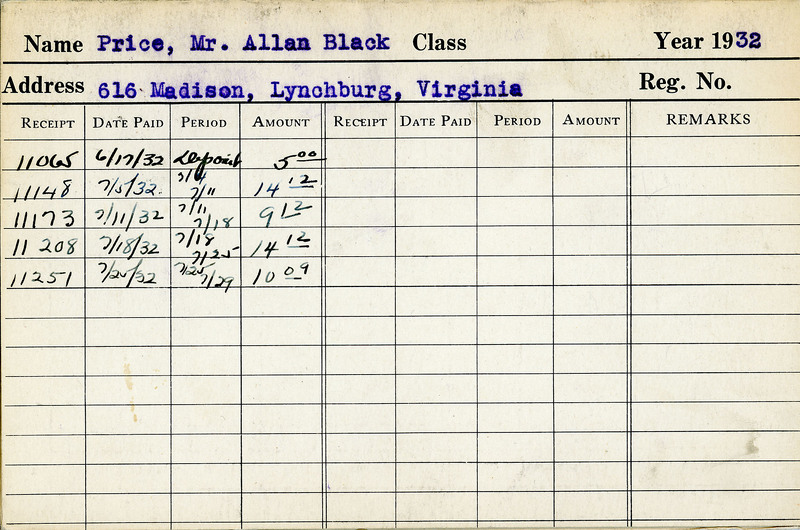 Name Price, Mr. Allan Black Class Year 1932
Address 616 Madison, Lynchburg, Virginia Reg. No.
RECEIPT DATE PAID PERIOD AMOUNT RECEIPT DATE PAID PERIOD AMOUNT REMARKS
11065 6/17/32 Deposit 5 00
11148 7/5/32 7/4 7/11 14 12
11173 7/11/32 7/11 7/18 9 12
11208 7/18/32 7/18 7/25 14 12
11251 7/25/32 7/25 7/29 10 09